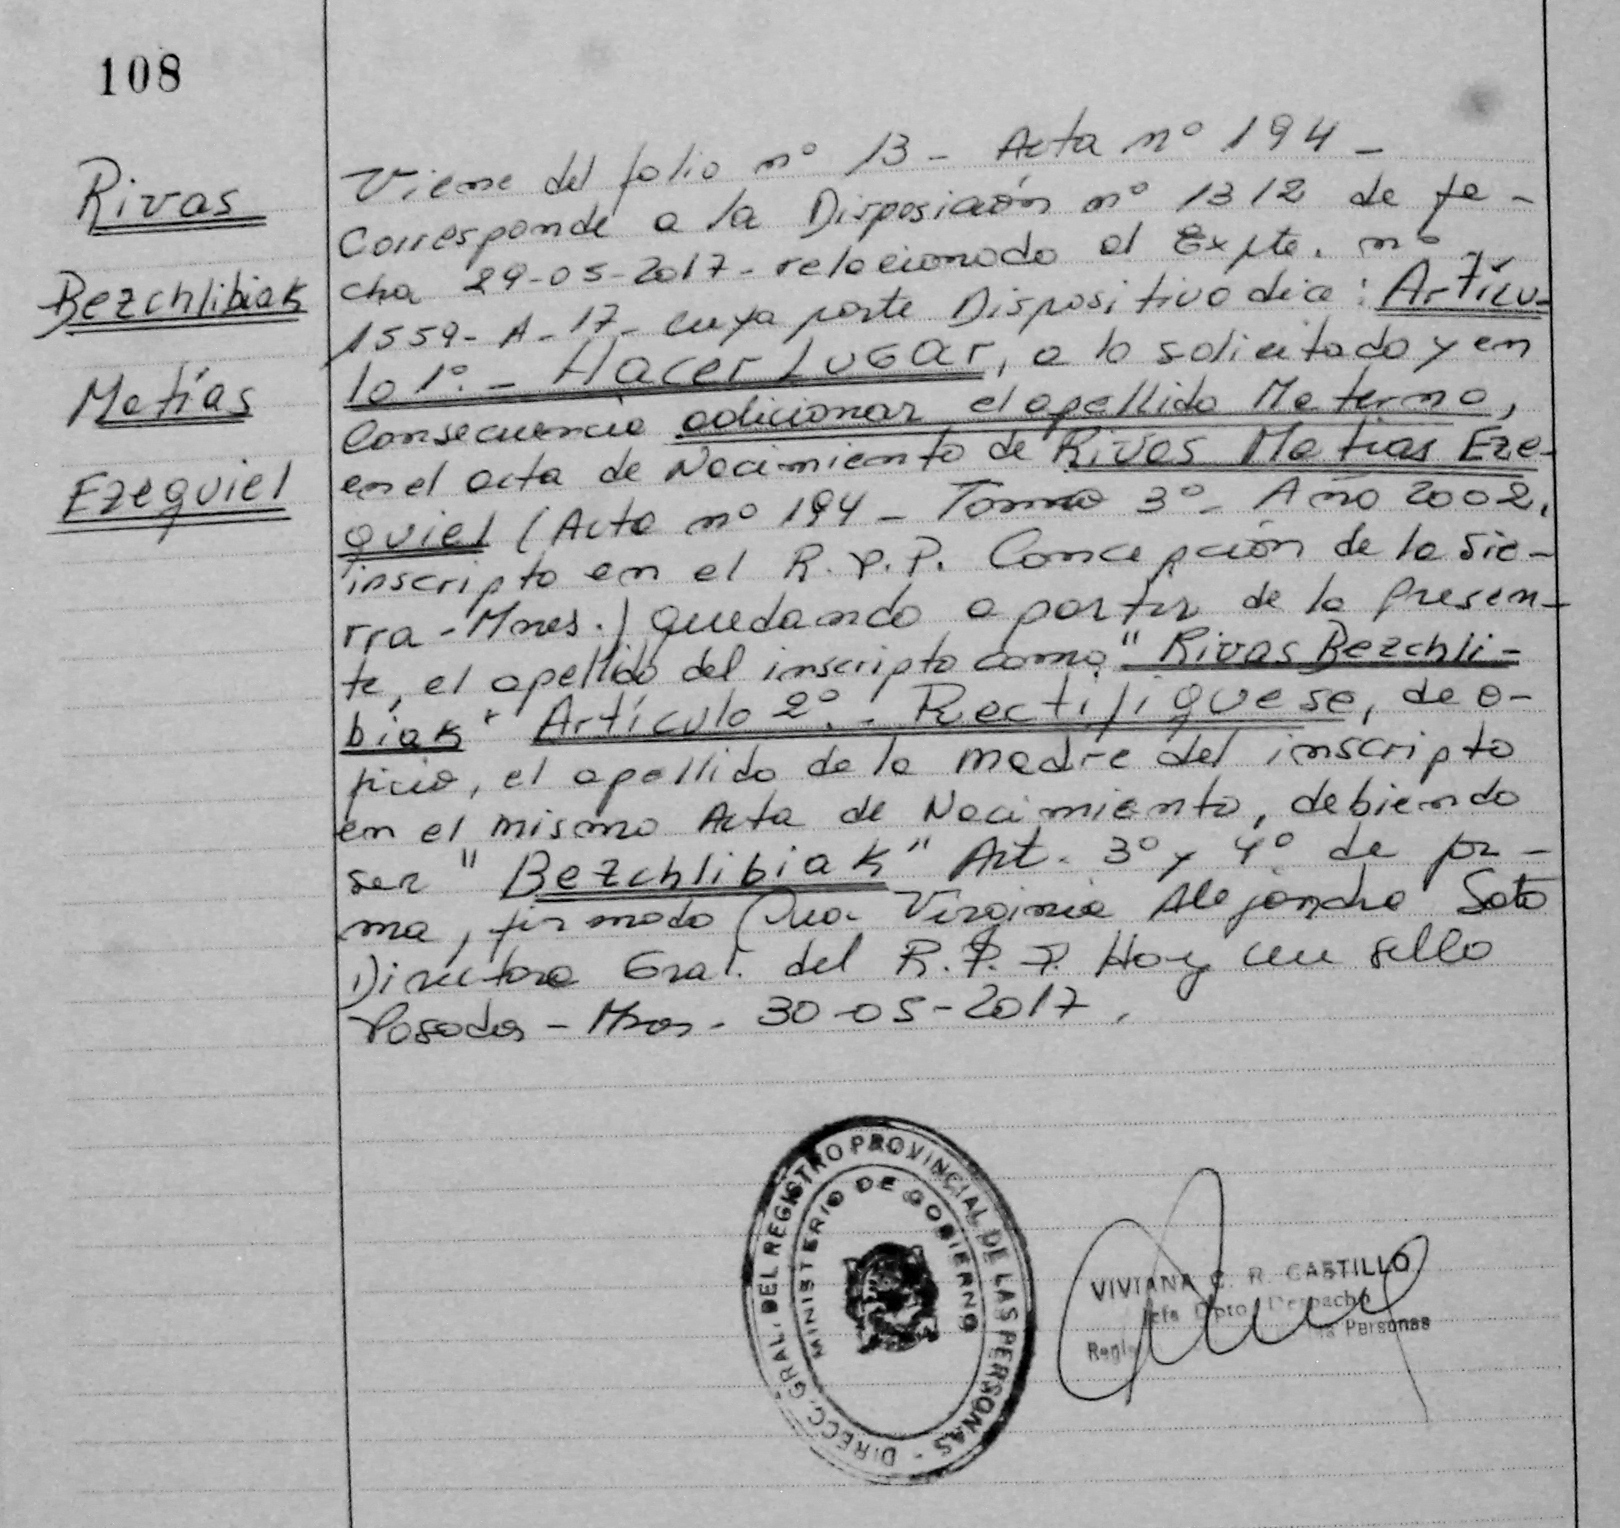 108
Rivas
Bezchlibiak
Matías
Ezequiel
Viene del folio nº 13 - Acta nº 194 -
Corresponde a la Disposición nº 1312 de fe-
cha 29-05-2017 - relacionado al Expte. nº
1559 - A - 17 - cuya parte Dispositiva dice: Artícu-
lo 1º. - Hacer Lugar, a lo solicitado y en
Consecuencia adicionar el apellido Materno,
en el acta de Nacimiento de Rivas Matias Eze-
quiel (Acta nº 194 - Tomo 3º - Año 2002.
inscripto en el R.P.P. Concepción de la Sie-
rra - Mnes.) quedando a partir de la Presen-
te, el apellido del inscripto como "Rivas Bezchli-
biak" Artículo 2º. - Rectifiquese, de o-
ficio, el apellido de la madre del inscripto
en el mismo Acta de Nacimiento, debiendo
ser "Bezchlibiak" Art. 3º y 4º de for-
ma, firmado Virginia Alejandra Soto
Directora Gral. del R.P.P. Hay un sello
Posadas - Mnes - 30-05-2017.
DIRECC. GRAL. DEL REGISTRO PROVINCIAL DE LAS PERSONAS -
MINISTERIO DE GOBIERNO
VIVIANA C. R. CASTILLO
Jefe Dpto. Despacho
Personas